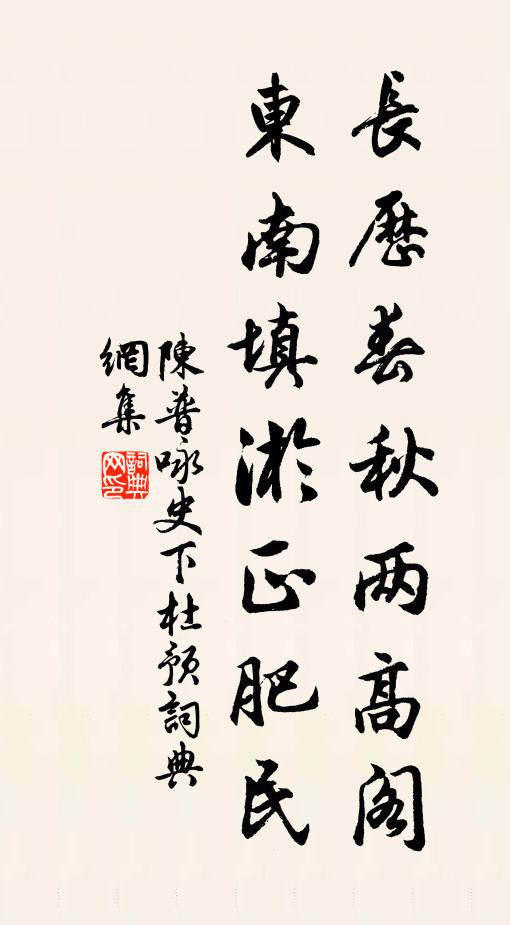 長歷春秋两高阁
東南填淤正肥民
陳普咏史下杜預詞典
網集
詞典網印